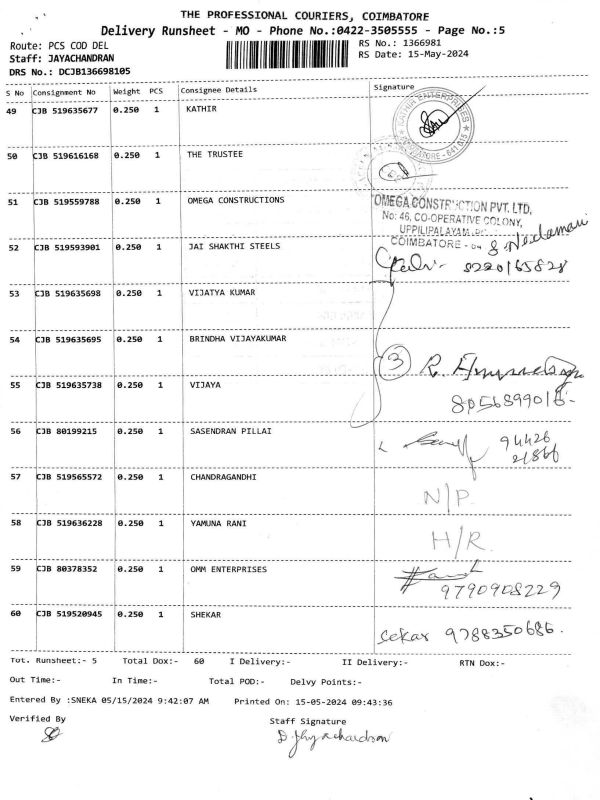 THE PROFESSIONAL COURIERS, COIMBATORE
Delivery Runsheet - MO - Phone No.:0422-3505555 - Page No.:5
Route: PCS COD DEL
RS No.: 1366981
Staff: JAYACHANDRAN
RS Date: 15-May-2024
DRS No.: DCJB136698105
S No Consignment No Weight PCS Consignee Details Signature
49 CJB 519635677 0.250 1 KATHIR
KATHIR ENTERPRISES
50 CJB 519616168 0.250 1 THE TRUSTEE
51 CJB 519559788 0.250 1 OMEGA CONSTRUCTIONS
OMEGA CONSTRUCTION PVT. LTD,
No: 46, CO-OPERATIVE COLONY,
UPPILIPALAYAM
COIMBATORE -
52 CJB 519593901 0.250 1 JAI SHAKTHI STEELS
8220165828
53 CJB 519635698 0.250 1 VIJATYA KUMAR
54 CJB 519635695 0.250 1 BRINDHA VIJAYAKUMAR
3 R.
55 CJB 519635738 0.250 1 VIJAYA
56 CJB 80199215 0.250 1 SASENDRAN PILLAI
94426
21866
57 CJB 519565572 0.250 1 CHANDRAGANDHI
N/P.
58 CJB 519636228 0.250 1 YAMUNA RANI
H/R.
59 CJB 80378352 0.250 1 OMM ENTERPRISES
9790908229
60 CJB 519520945 0.250 1 SHEKAR
sekar 9788350686.
Tot. Runsheet:- 5 Total Dox:- 60 I Delivery:- II Delivery:- RTN Dox:-
Out Time:- In Time:- Total POD:- Delvy Points:-
Entered By :SNEKA 05/15/2024 9:42:07 AM Printed On: 15-05-2024 09:43:36
Verified By
Staff Signature